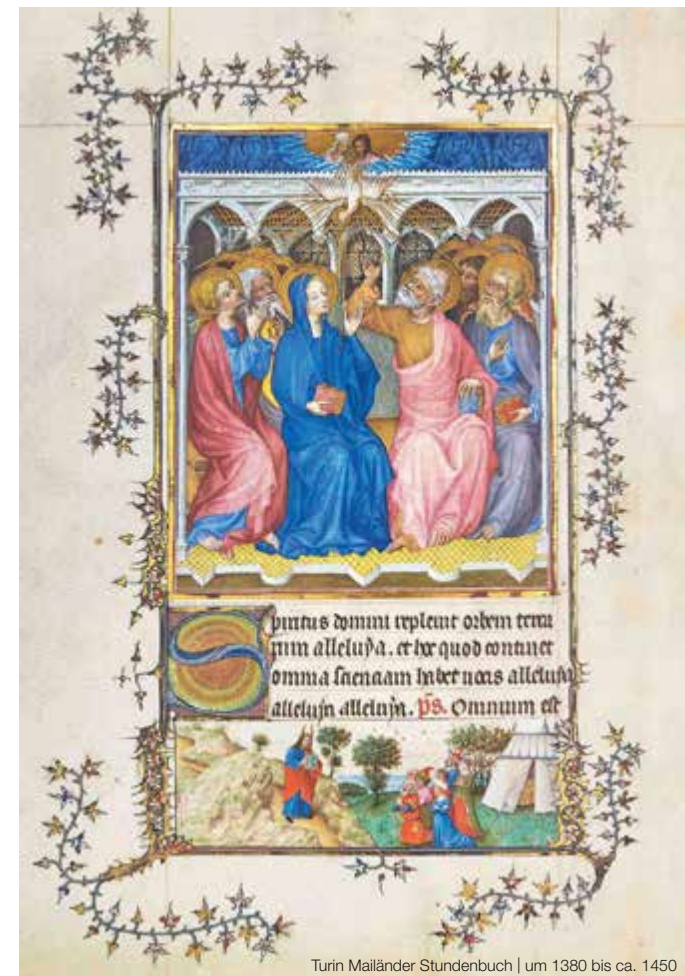 Spiritus domini repleuit orbem terrar
rum alleluya. et hoc quod continet
omnia scienciam habet uocis alleluya
alleluya alleluya. ps. Omnium est
Turin Mailänder Stundenbuch | um 1380 bis ca. 1450